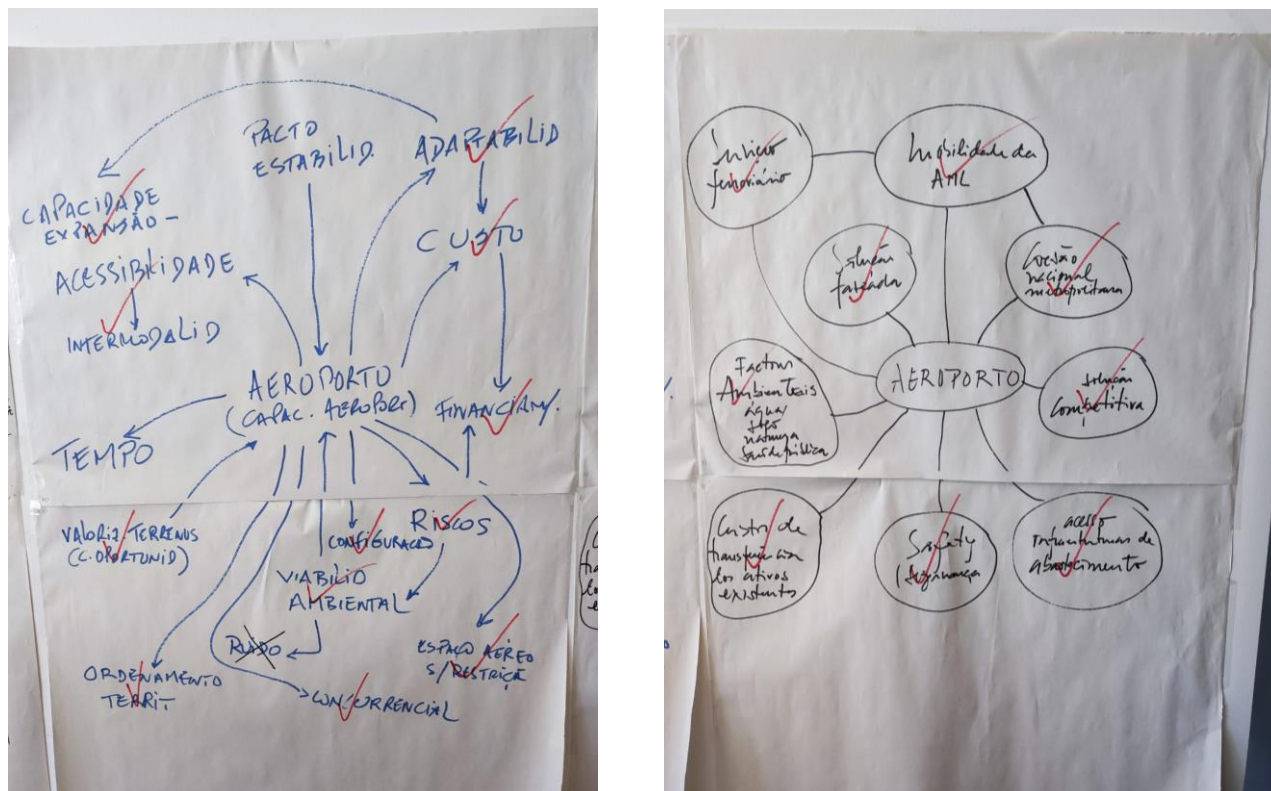 PACTO
ESTABILID.
ADAPTABILID
CAPACIDADE
EXPANSÃO -
CUSTO
ACESSIBILIDADE
INTERMODALID
AEROPORTO
(CAPAC. AEROPORT)
FINANCIAM.
TEMPO
VALORIZ. TERRENOS
(C. OPORTUNID)
CONFIGURAÇÃO
RISCOS
VIABILID
AMBIENTAL
RUIDO
ESPAÇO AÉREO
S/RESTRIÇÃ
ORDENAMENTO
TERRIT-
CONCURRENCIAL
ferroviário
Mobilidade da
AML
Solução
faseada
Coesão
nacional
metropolitana
Factores
Ambientais
água
natureza
saúde pública
AEROPORTO
Solução
Competitiva
Custo de
transferência
dos ativos
existentes
Safety
/Segurança
acesso
infraestruturas de
abastecimento